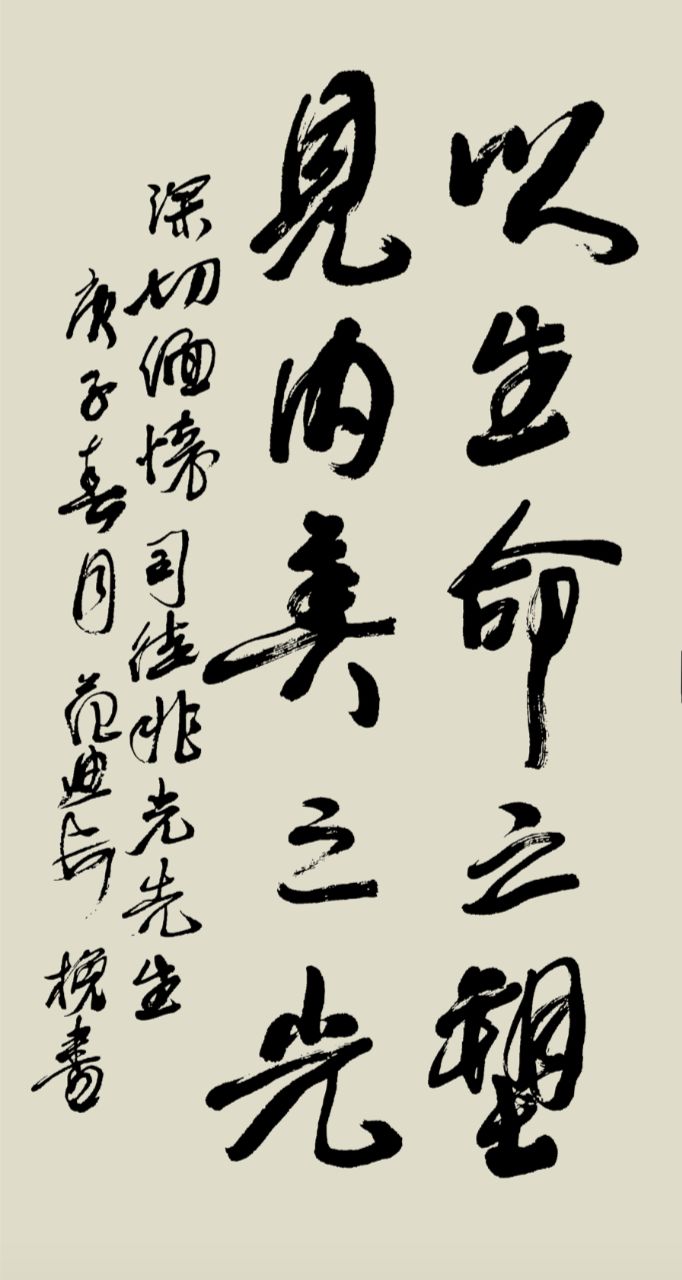 以生命之塑
見内美之光
深切缅懷司徒兆光先生
庚子春月范迪安挽書